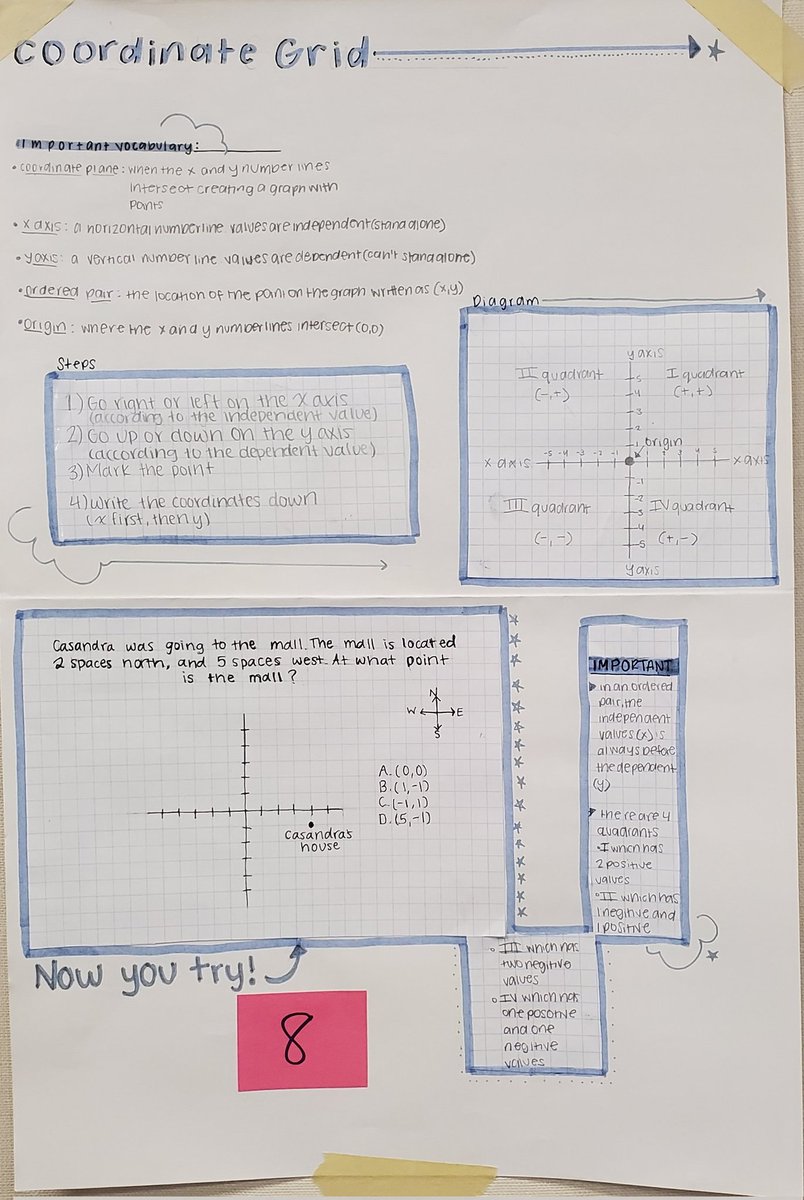 Coordinate Grid
Important vocabulary:
• coordinate plane: when the x and y number lines
intersect creating a graph with
points
• x axis: a horizontal numberline values are independent (stand alone)
• y axis: a vertical number line values are dependent (can't stand alone)
• ordered pair: the location of the point on the graph written as (x,y)
• Origin: where the x and y numberlines intersect (0,0)
Steps
1) Go right or left on the x axis
(according to the independent value)
2) Go up or down on the y axis
(according to the dependent value)
3) Mark the point
4) Write the coordinates down
(x first, then y)
Diagram
y axis
II quadrant
(-,+)
I quadrant
(+,+)
5
4
3
2
1
origin
x axis
-5 -4 -3 -2 -1
1 2 3 4 5
x axis
-1
-2
-3
-4
-5
III quadrant
(-,-)
IV quadrant
(+,-)
y axis
Casandra was going to the mall. The mall is located
2 spaces north, and 5 spaces west. At what point
is the mall?
N
W E
S
A. (0,0)
B. (1,-1)
C. (-1,1)
D. (5,-1)
Casandra's
house
Now you try!
IMPORTANT
in an ordered
pair, the
independent
values (x) is
always before
the dependent
(y)
there are 4
quadrants
• I which has
2 positive
values
• II which has
1 negitive and
1 positive
○ III which has
two negitive
values
○ IV which has
one positive
and one
negitive
values
8